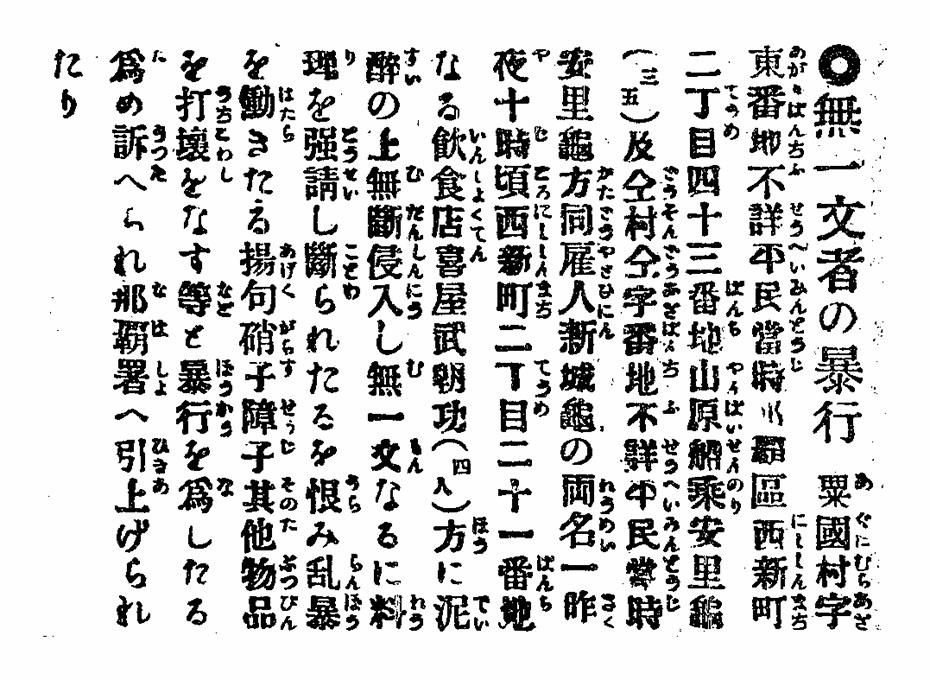 ◎無一文者の暴行　粟國村字
東番地不詳平民當時那覇區西新町
二丁目四十三番地山原船乘安里龜
（三五）及仝村仝字番地不詳平民當時
安里龜方同雇人新城龜の両名一昨
夜十時頃西新町二丁目二十一番地
なる飮食店喜屋武朝功（四八）方に泥
醉の上無斷侵入し無一文なるに料
理を强請し斷られたるを恨み乱暴
を働きたる揚句硝子障子其他物品
を打壞をなす等と暴行を爲したる
爲め訴へられ那覇署へ引上げられ
たり